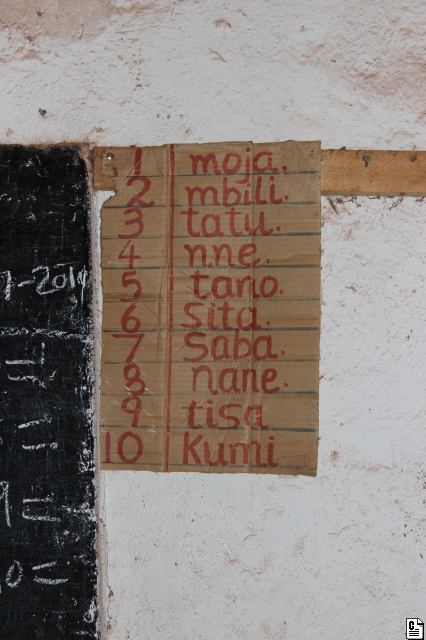 1 moja.
2 mbili.
3 tatu.
4 nne.
5 tano.
6 Sita.
7 Saba.
8 nane.
9 tisa
10 Kumi
-2019
=
=
=
0=